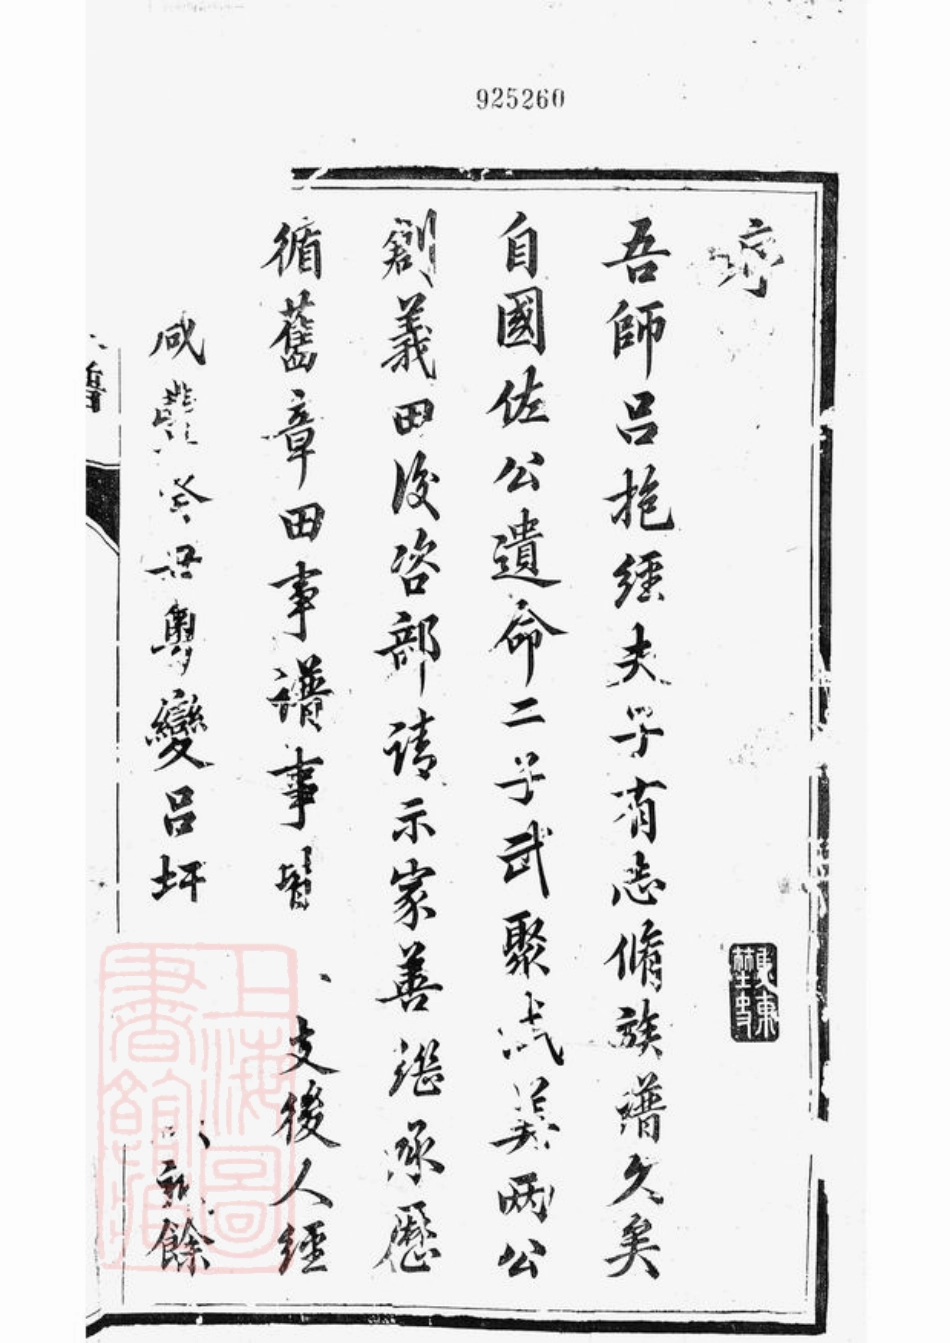 925260
序
吾師呂抱經夫子有志脩族譜久矣
自國佐公遺命二子武聚武英兩公
創義田後咨部請示家善繼承歷
循舊章田事譜事 支後人經
咸豐癸丑粵變呂坪 餘
上海圖書館藏